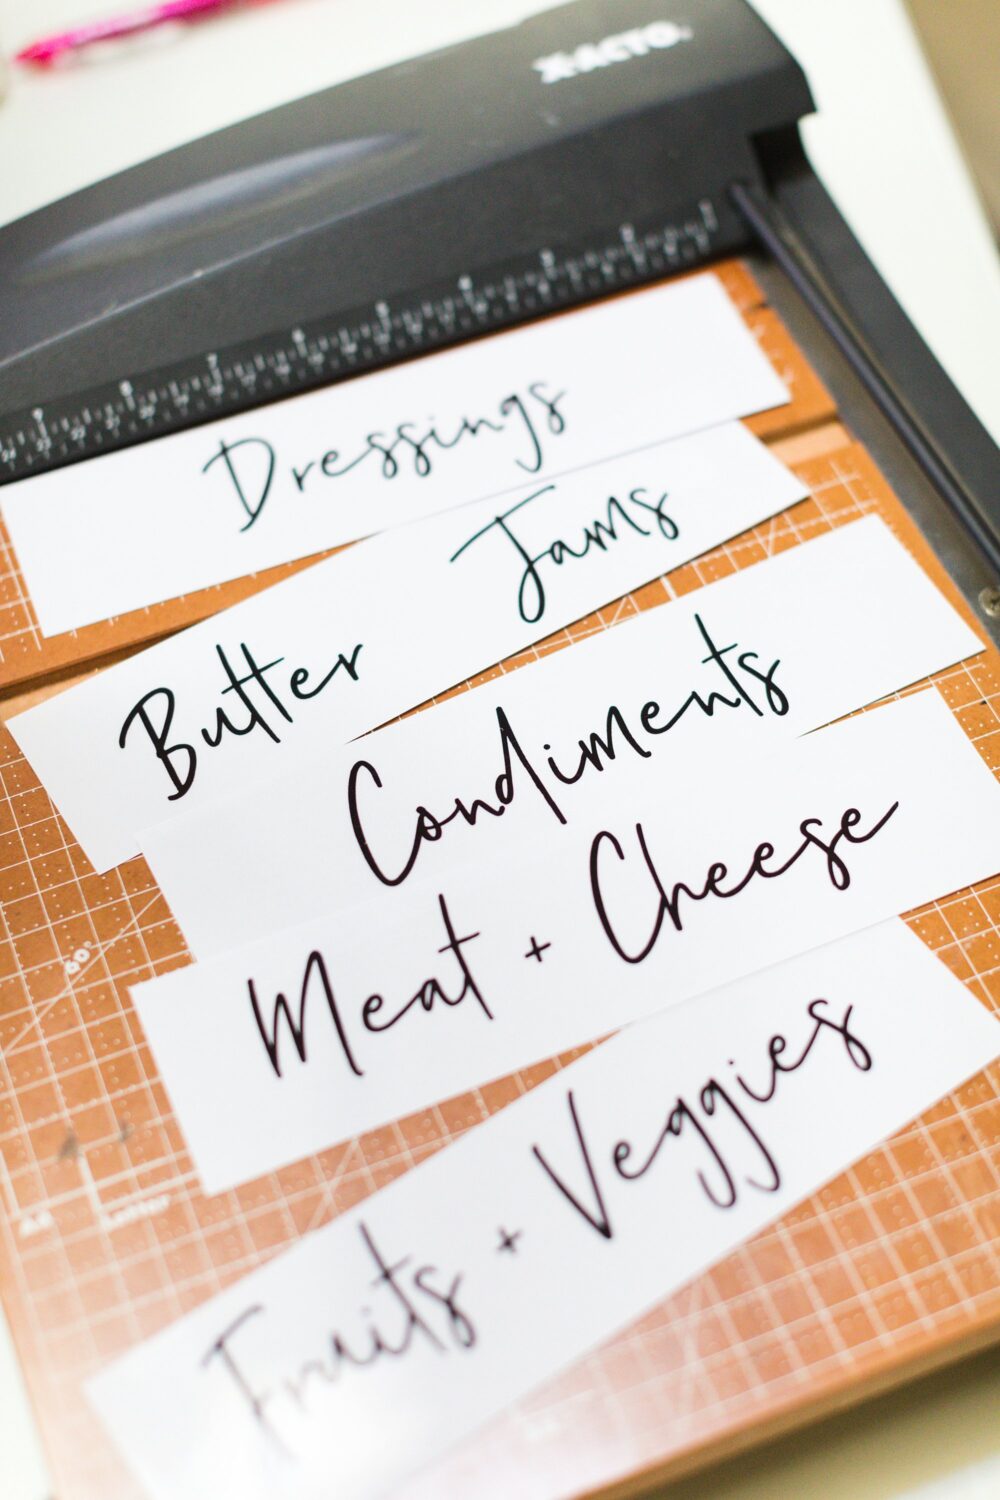 X-ACTO
Dressings
Butter Jams
Condiments
Meat + Cheese
Fruits + Veggies
60°
A5
Letter